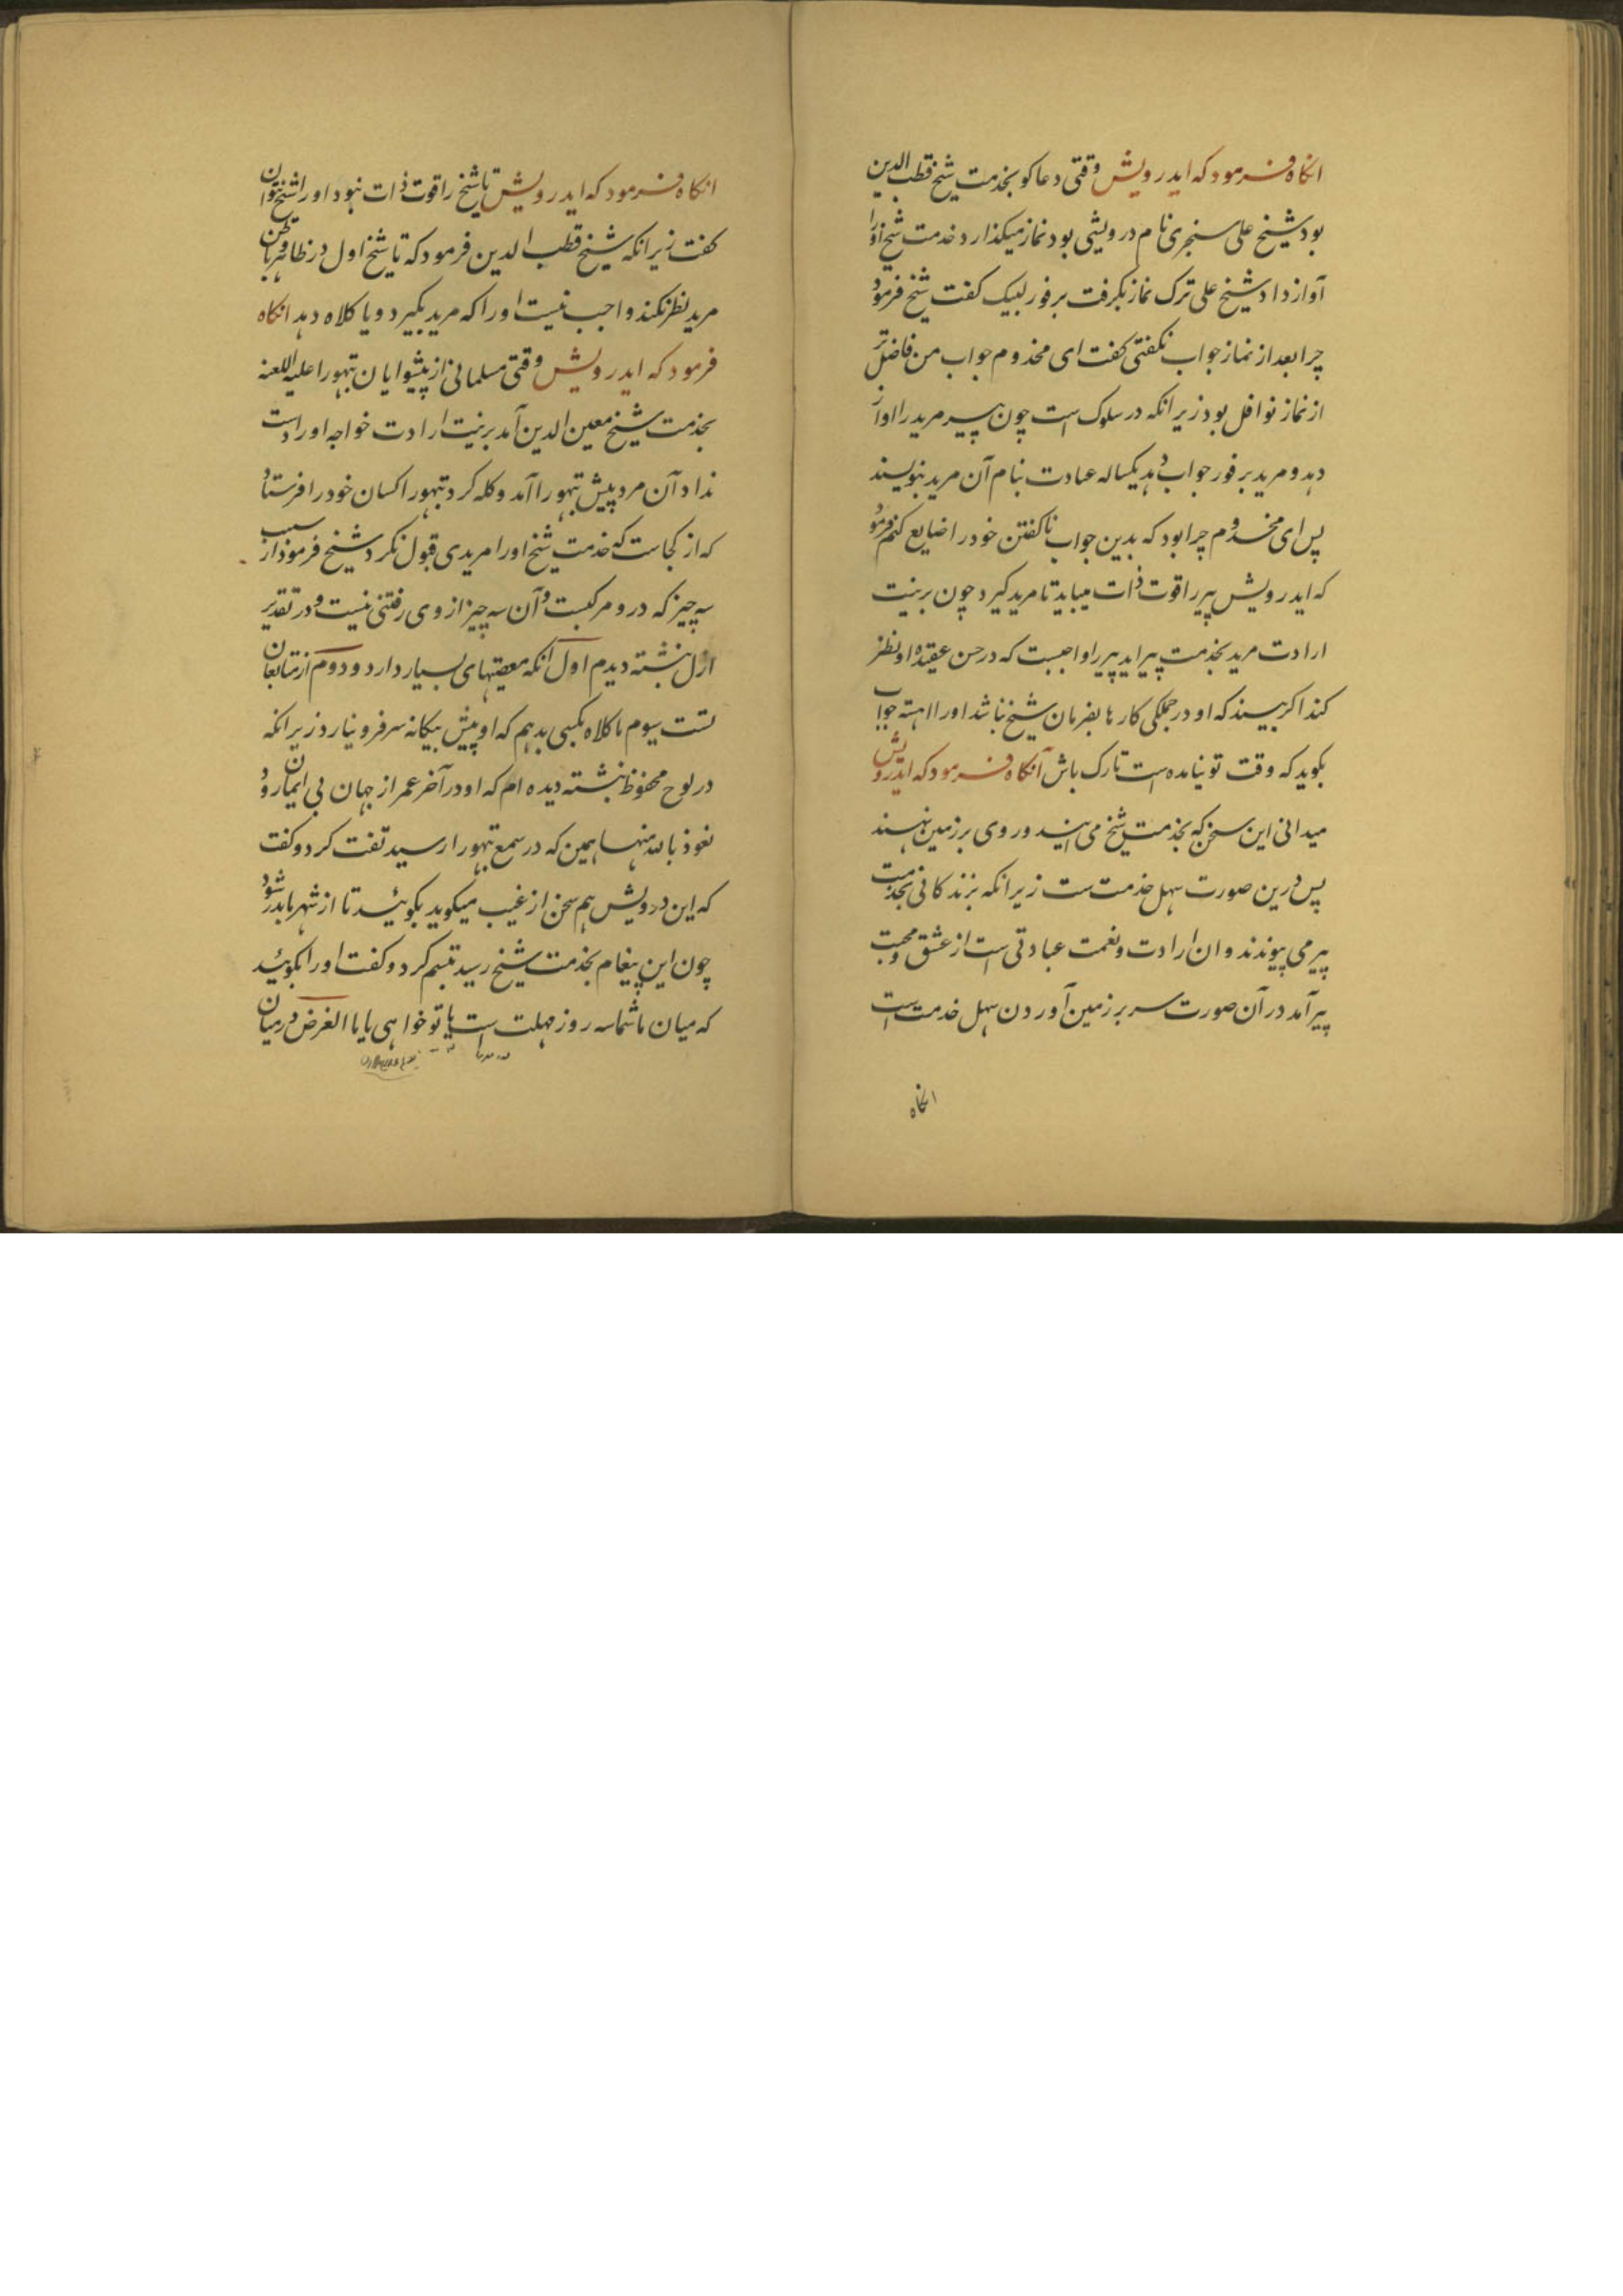 انکاه فرمود که ایدرویش وقتی دعاکو بخدمت شیخ قطب الدین
بود شیخ علی سنجری نام درویشی بود نماز میکذارد خدمت شیخ اورا
آواز داد شیخ علی ترک نماز بکرفت برفور لبیک کفت شیخ فرمود
چرا بعد از نماز جواب نکفتی کفت ای مخدوم جواب من فاضل تر
از نماز نوافل بود زیرانکه در سلوک است چون پیر مرید را اواز
دهد و مرید برفور جواب دهد یکساله عبادت بنام آن مرید بنویسند
پس ای مخدوم چرا بود که بدین جواب ناکفتن خود را ضایع کنم فرمود
که ایدرویش پیر را قوت ذات میباید تا مرید کیرد چون بر نیت
ارادت مرید بخدمت پیر اید پیر را واجبست که در حسن عقیده او نظر
کند اکر بیند که او در جملکی کارها بفرمان شیخ نباشد اورا اهسته جواب
بکوید که وقت تو نیامده است تارک باش آنکاه فرمود که ایدرویش
میدانی این سخن که بخدمت شیخ می ایند و روی بر زمین نهند
پس درین صورت سهل خدمت ست زیرانکه بزندکانی بخدمت
پیر می پیوندند و ان ارادت و نعمت عبادتی است از عشق و محبت
پیر آمد در آن صورت سر بر زمین آوردن سهل خدمت است
انکاه
انکاه فرمود که ایدرویش تا شیخ را قوت ذات نبود اورا شیخ نتوان
کفت زیرانکه شیخ قطب الدین فرمود که تا شیخ اول در ظاهر و باطن
مرید نظر نکند واجب نیست اورا که مرید بکیرد و یا کلاه دهد انکاه
فرمود که ایدرویش وقتی مسلمانی از پیشوایان تپهورا علیه اللعنه
بخدمت شیخ معین الدین آمد بر نیت ارادت خواجه اورا دست
نداد آن مرد پیش تپهورا آمد و کله کرد تپهورا کسان خود را فرستاد
که از کجاست که خدمت شیخ اورا مریدی قبول نکرد شیخ فرمود از سبب
سه چیز که درو مرکبست و آن سه چیز از وی رفتنی نیست و در تقدیر
ازل نبشته دیدم اول آنکه معصیتهای بسیار دارد و دوم از متابعان
تست سیوم ما کلاه بکسی بدهیم که او پیش بیکانه سر فرو نیارد زیرانکه
در لوح محفوظ نبشته دیده ام که او در آخر عمر از جهان بی ایمان رود
نعوذ بالله منها همین که در سمع تپهورا رسید تفت کرد و کفت
که این درویش هم سخن از غیب میکوید بکوئید تا از شهر ما بدر شود
چون این پیغام بخدمت شیخ رسید تبسم کرد و کفت اورا بکوئید
که میان ما شما سه روز مهلت است یا تو خواهی یا ما الغرض درمیان